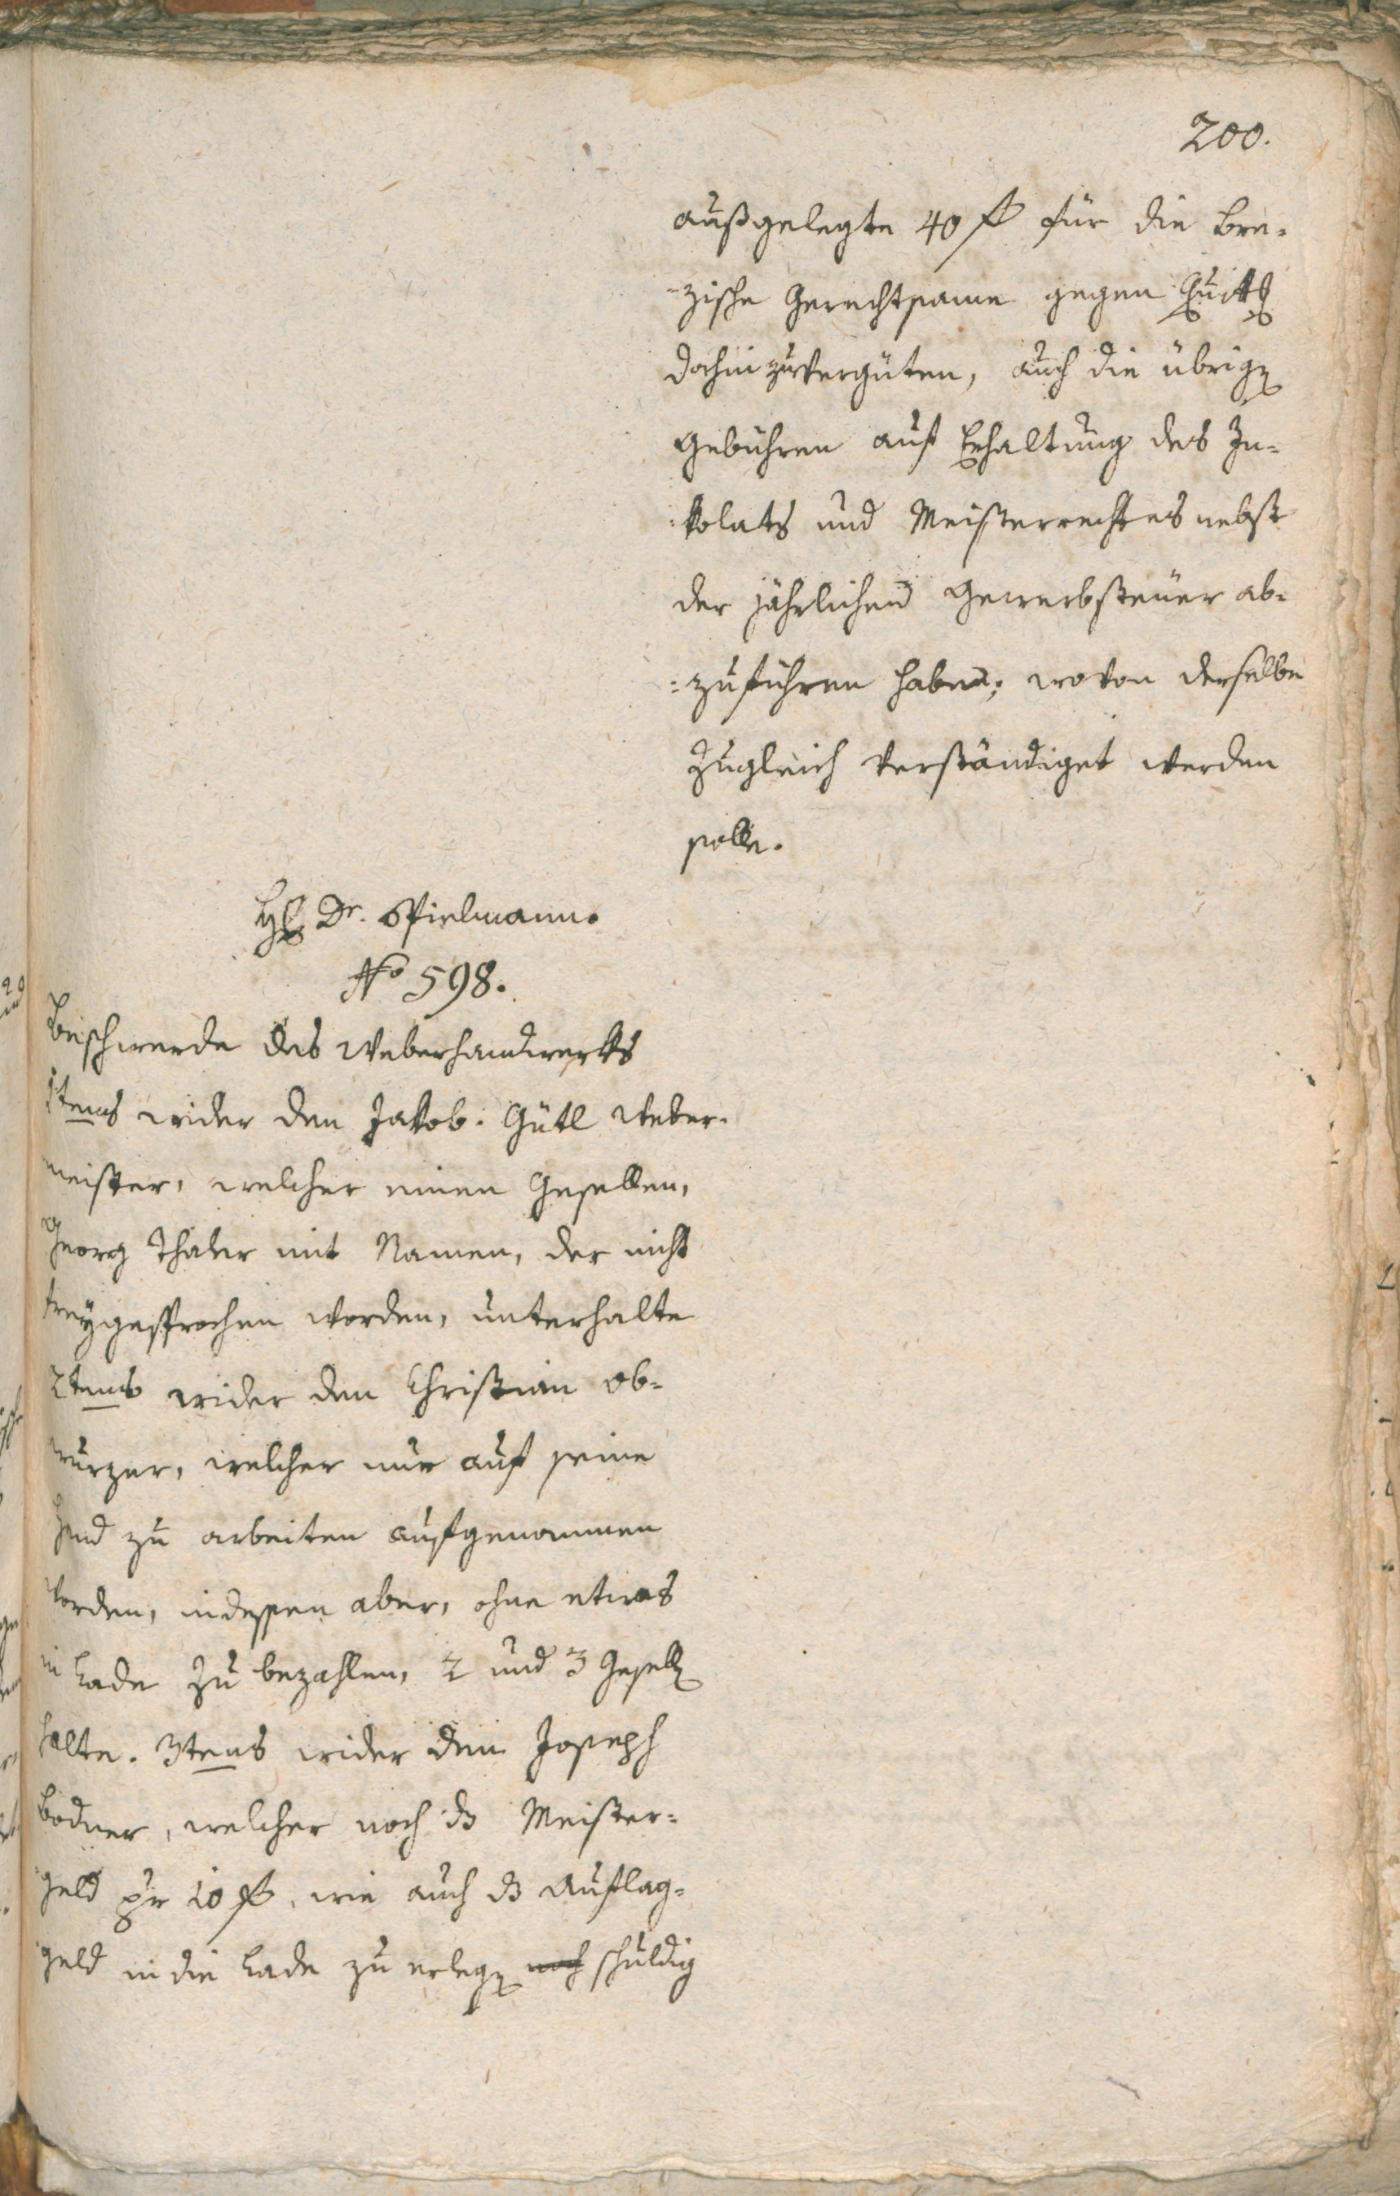 200.
außgelegte 40 f für die Bre-
-zische Gerechtsame gegen Quittg
dahin zuvergüten, auch die übrig
Gebühren auf Erhaltung des In-
-kolats und Meisterrechtes nebst
der jährlichen Gewerbsteüer ab-
-zuführen haben; wovon derselbe
zugleich verständiget werden
solle.
H. Dr. Spielmann.
No 598.
Beschwerde des Weberhandwerks
1tens wider den Jakob Gütl Weber-
meister, welcher einen Gesellen,
Georg Thaler mit Namen, der nicht
freygesprochen worden, unterhalte
2tens wider den Christian Ob-
wurzer, welcher nur auf seine
Hend zu arbeiten aufgenommen
worden, indessen aber, ohne etwas
in Lade zu bezahlen, 2 und 3 Gesell
halte. 3tens wider den Joseph
Bodner, welcher noch ds Meister-
geld pr 10 f, wie auch ds Auflag-
geld in die Lade zu erleg noch schuldig